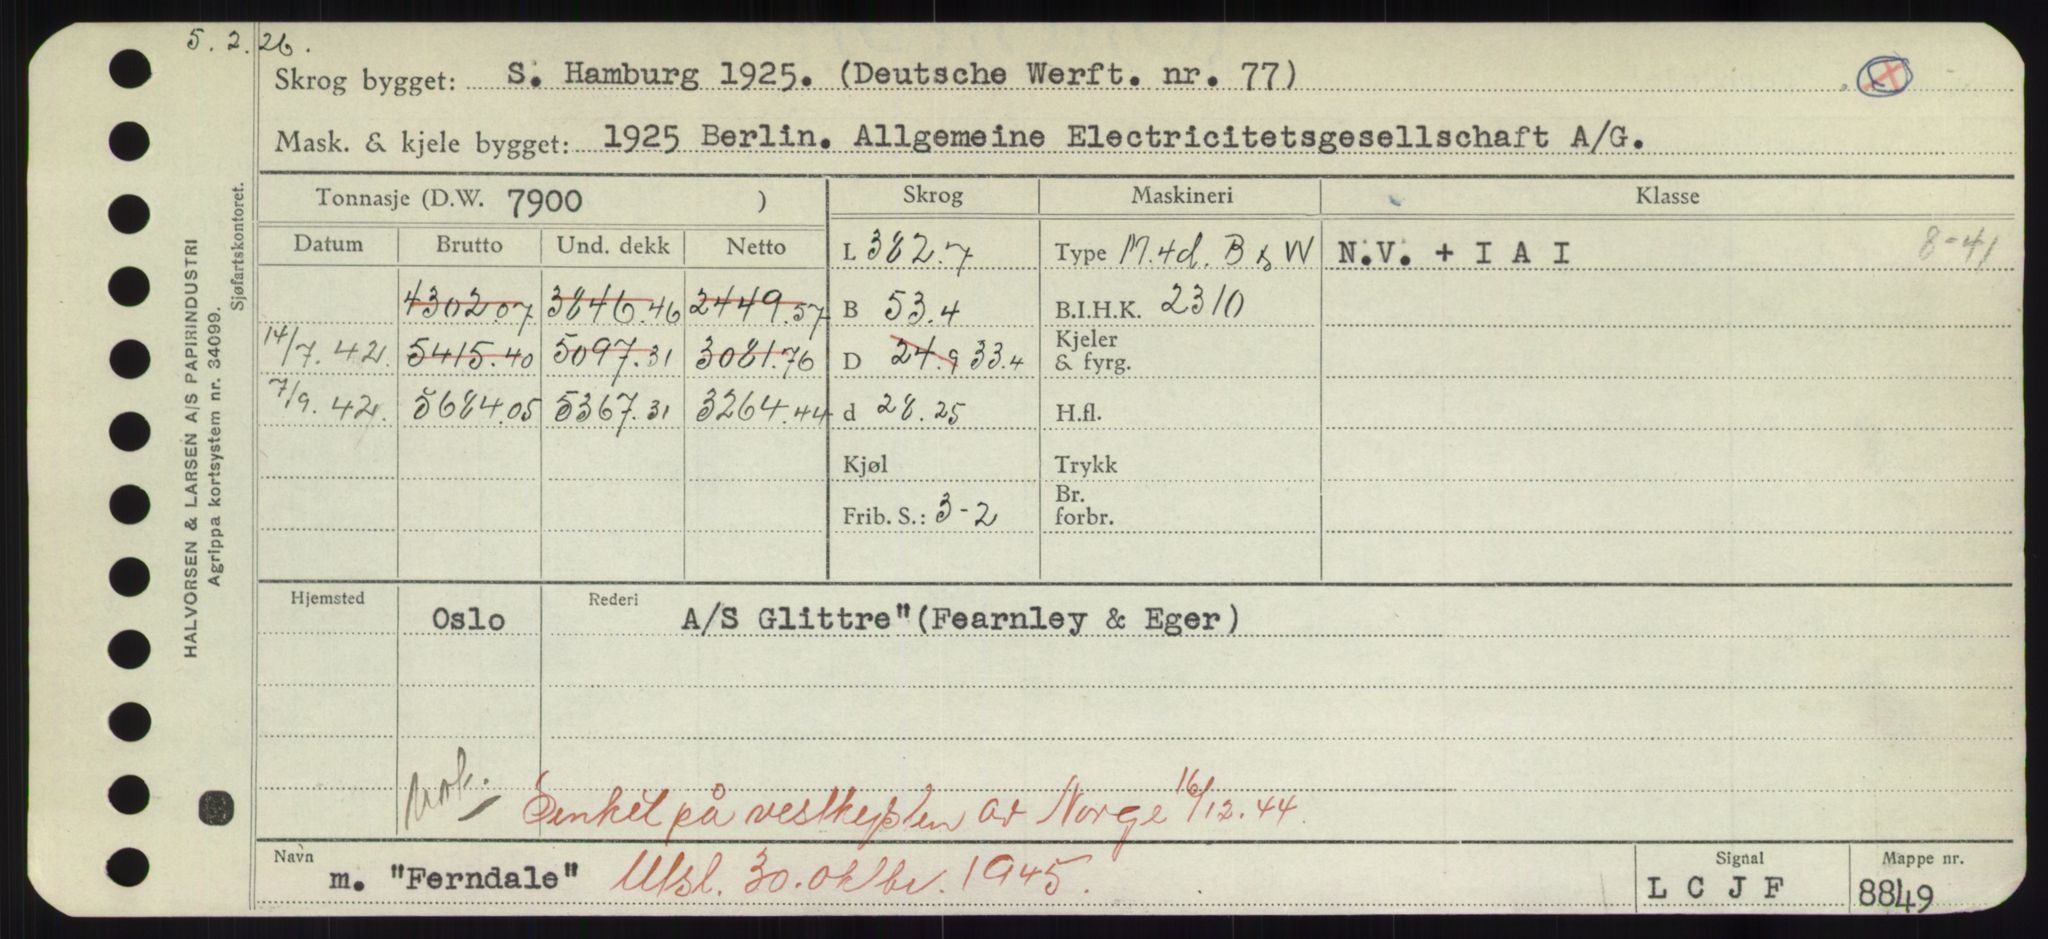 5. 2. 26.
Skrog bygget: S. Hamburg 1925. (Deutsche Werft. nr. 77)
Mask. & kjele bygget: 1925 Berlin. Allgemeine Electricitetsgesellschaft A/G.
HALVORSEN & LARSEN A/S PAPIRINDUSTRI
Agrippa kortsystem nr. 34099.
Sjøfartskontoret.
Tonnasje (D.W. 7900 ) Skrog Maskineri Klasse
Datum Brutto Und. dekk Netto L 382.7 Type M.4d. B & W N.V. + I A I 8-41
4302.07 3846.46 2449.57 B 53.4 B.I.H.K. 2310
14/7.42. 5415.40 5097.31 3081.76 D 24.9 33.4 Kjeler & fyrg.
7/9.42. 5684.05 5367.31 3264.44 d 28.25 H.fl.
Kjøl Trykk
Frib. S.: 3-2 Br. forbr.
Hjemsted Oslo Rederi A/S Glittre" (Fearnley & Eger)
Senket på vestkysten av Norge 16/12.44.
Navn m. "Ferndale" Utsl. 30. oktbr. 1945. Signal L C J F Mappe nr. 8849